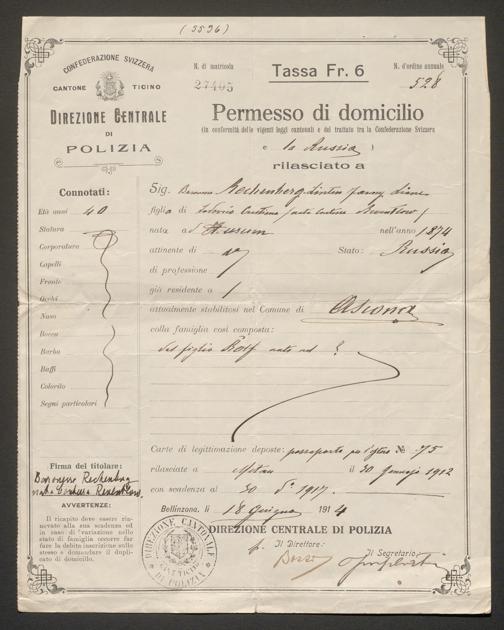 (5536)
CONFEDERAZIONE SVIZZERA
CANTONE TICINO
DIREZIONE CENTRALE
DI
POLIZIA
N. di matricola
27405
Tassa Fr. 6
N. d'ordine annuale
528
Permesso di domicilio
(in conformità delle vigenti leggi cantonali e del trattato tra la Confederazione Svizzera
e la Russia )
rilasciato a
Connotati:
Età anni 40
Statura
Corporatura
Capelli
Fronte
Occhi
Naso
Bocca
Barba
Baffi
Colorito
Segni particolari
Sig. Rechenberg
figlia di
nata a
nell'anno 1874
attinente di
Stato: Russia
di professione
già residente a
attualmente stabilitosi nel Comune di Ascona
colla famiglia così composta:
del figlio Rolf nato nel ?
Carte di legittimazione deposte: passaporto per l'estero № 75
rilasciate a Mitau il 30 Gennajo 1912
con scadenza al 30 1917.
Bellinzona, li 18 Giugno 1914
DIREZIONE CENTRALE DI POLIZIA
p. Il Direttore:
Il Segretario:
Firma del titolare:
Rechenberg
AVVERTENZE:
Il ricapito deve essere rinnovato alla sua scadenza ed in caso di variazione nello stato di famiglia occorre far fare la debita inscrizione sullo stesso e domandare il duplicato di domicilio.
DIREZIONE CANTONALE
DI POLIZIA